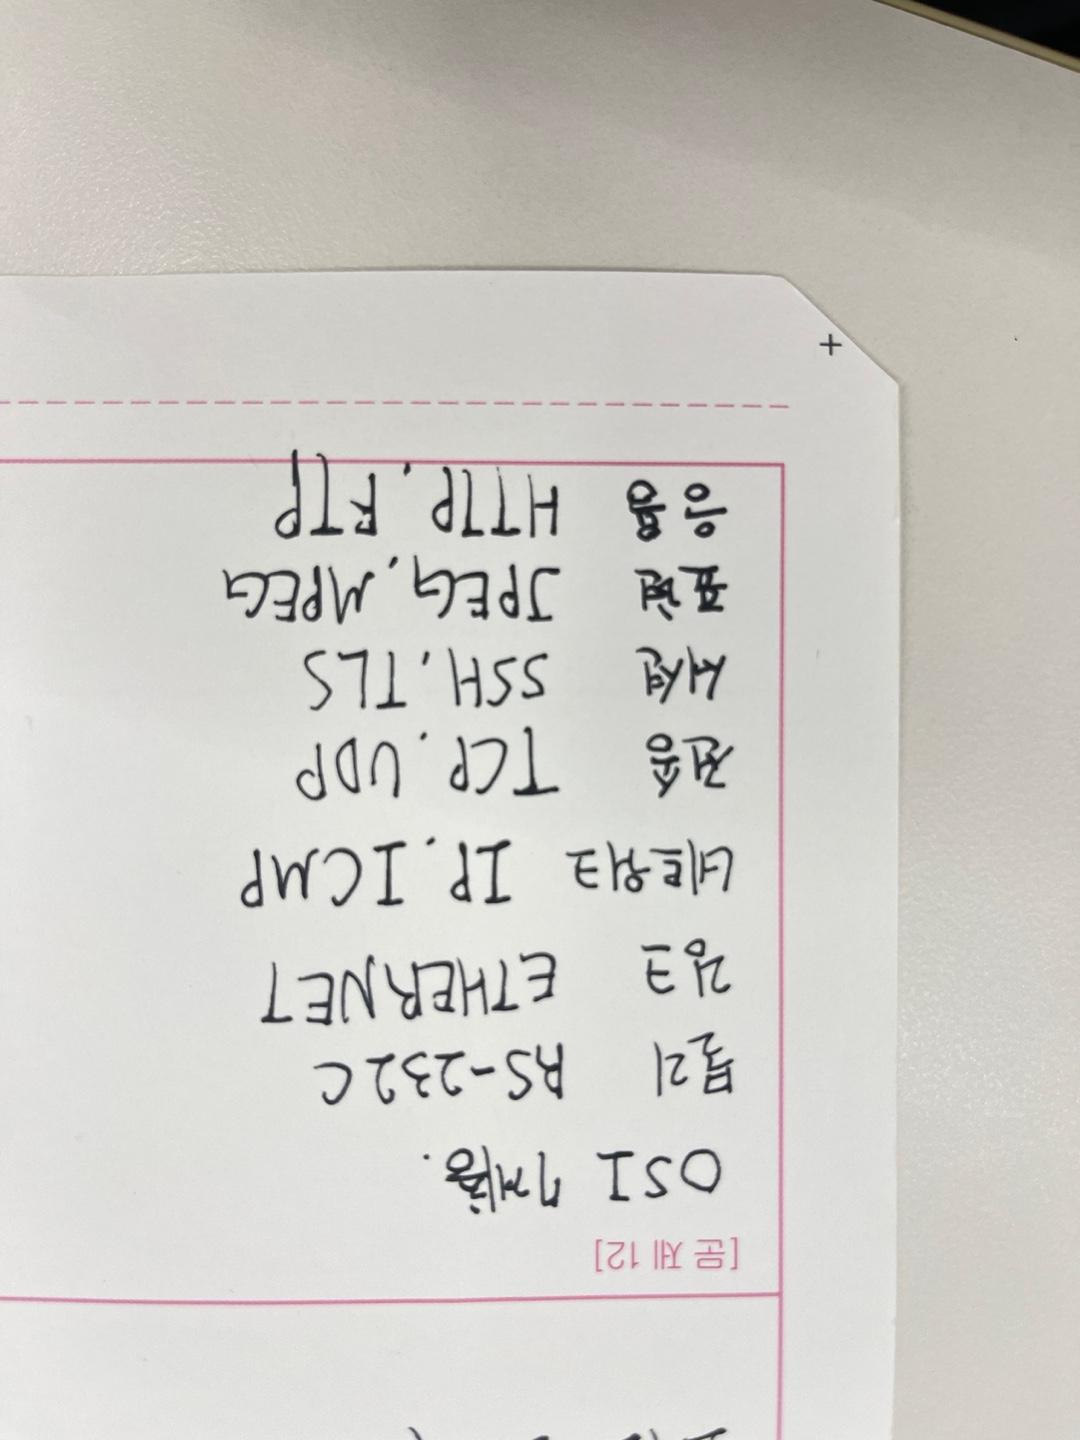 [문제 12]
OSI 7계층.
물리 RS-232C
링크 ETHERNET
네트워크 IP, ICMP
전송 TCP, UDP
세션 SSH, TLS
표현 JPEG, MPEG
응용 HTTP, FTP